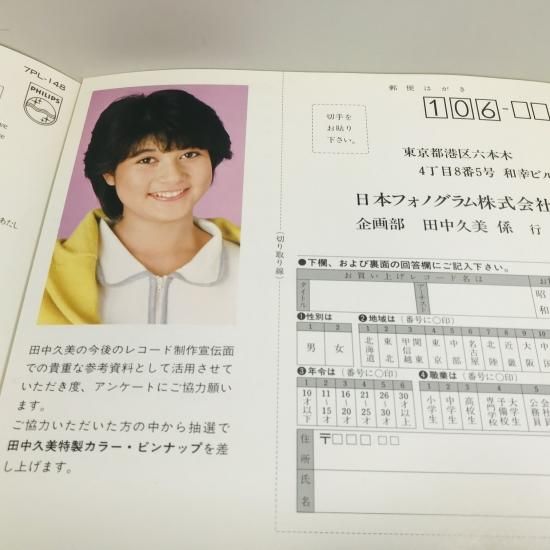 7PL-148
PHILIPS
田中久美の今後のレコード制作宣伝面
での貴重な参考資料として活用させて
いただき度、アンケートにご協力願い
ます。
ご協力いただいた方の中から抽選で
田中久美特製カラー・ピンナップを差
し上げます。
(切り取り線)
郵便はがき
切手を
お貼り
下さい。
106-□□
東京都港区六本木
4丁目8番5号 和幸ビル
日本フォノグラム株式会社
企画部 田中久美 係 行
●下欄、および裏面の回答欄にご記入下さい。
お買い上げレコード名は
タイトル
アーチスト
昭
和
❶性別は
1 2
男 女
❷地域は (番号に○印)
1 2 3 4 5 6 7 8 9
北海道 東北 甲信越 関東 東京 中部 名古屋 北陸 近畿 大阪 中国
❸年令は (番号に○印)
1 2 3 4 5 6
10才以下 11〜15才 16〜20才 21〜25才 26〜30才 30才以上
❹職業は (番号に○印)
1 2 3 4 5
小学生 中学生 高校生 専門学校 予備校 大学生 公務員 会社員
住所
〒□□□ □□
氏名